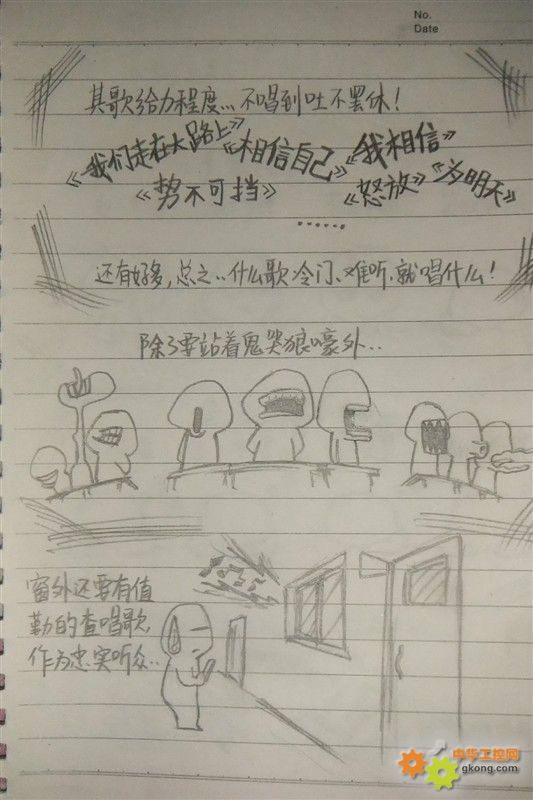 No.
Date
其歌给力程度… 不唱到吐不罢休！
《我们走在大路上》《相信自己》《我相信》
《势不可挡》《怒放》《为明天》
……
还有好多，总之..什么歌冷门、难听.就唱什么！
除了要站着鬼哭狼嚎外..
窗外还要有值
勤的查唱歌，
作为忠实听众..
中华工控网
gkong.com